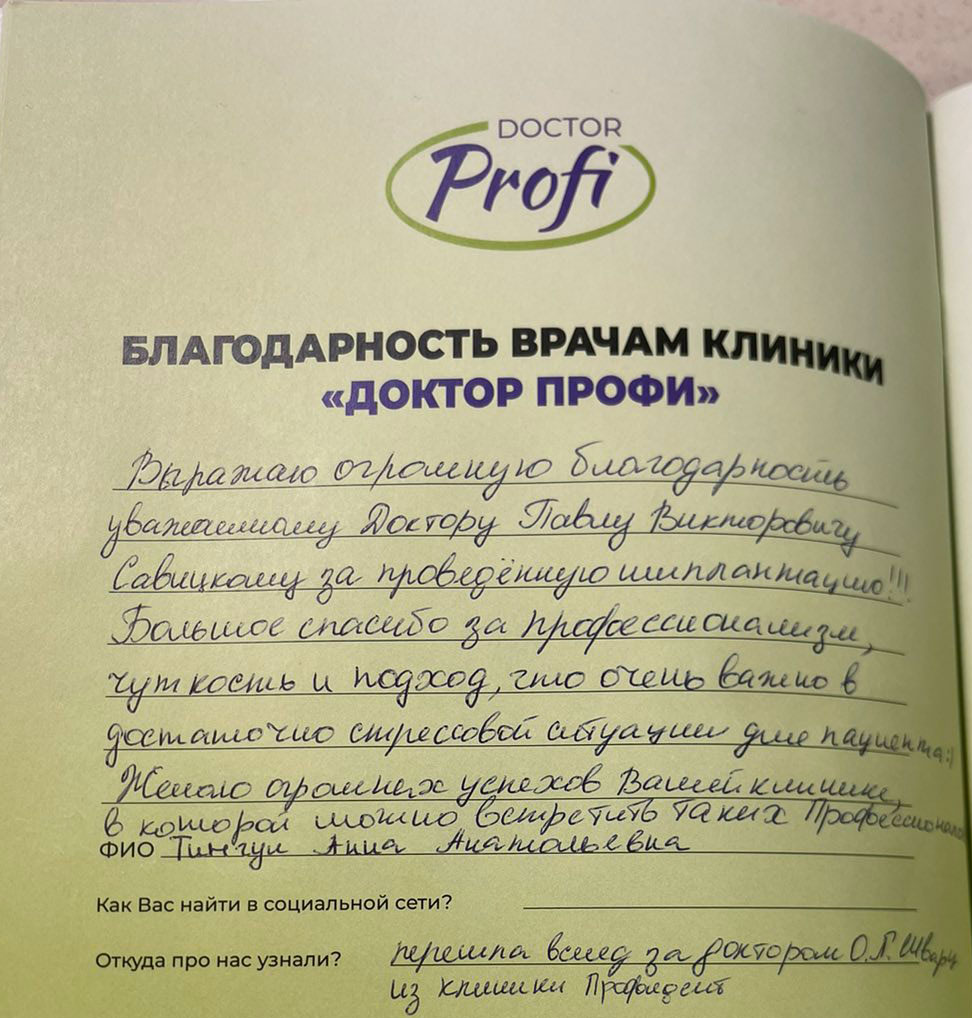 DOCTOR
Profi
БЛАГОДАРНОСТЬ ВРАЧАМ КЛИНИКИ
«ДОКТОР ПРОФИ»
Выражаю огромную благодарность
уважаемому Доктору Павлу Викторовичу
Савицкому за проведённую имплантацию!!!
Большое спасибо за профессионализм,
чуткость и подход, что очень важно в
достаточно стрессовой ситуации для пациента:)
Желаю огромных успехов Вашей клинике,
в которой можно встретить таких
ФИО Тингул Анна Анатольевна
Как Вас найти в социальной сети?
Откуда про нас узнали? перешла вслед за доктором
из клиники Профидент